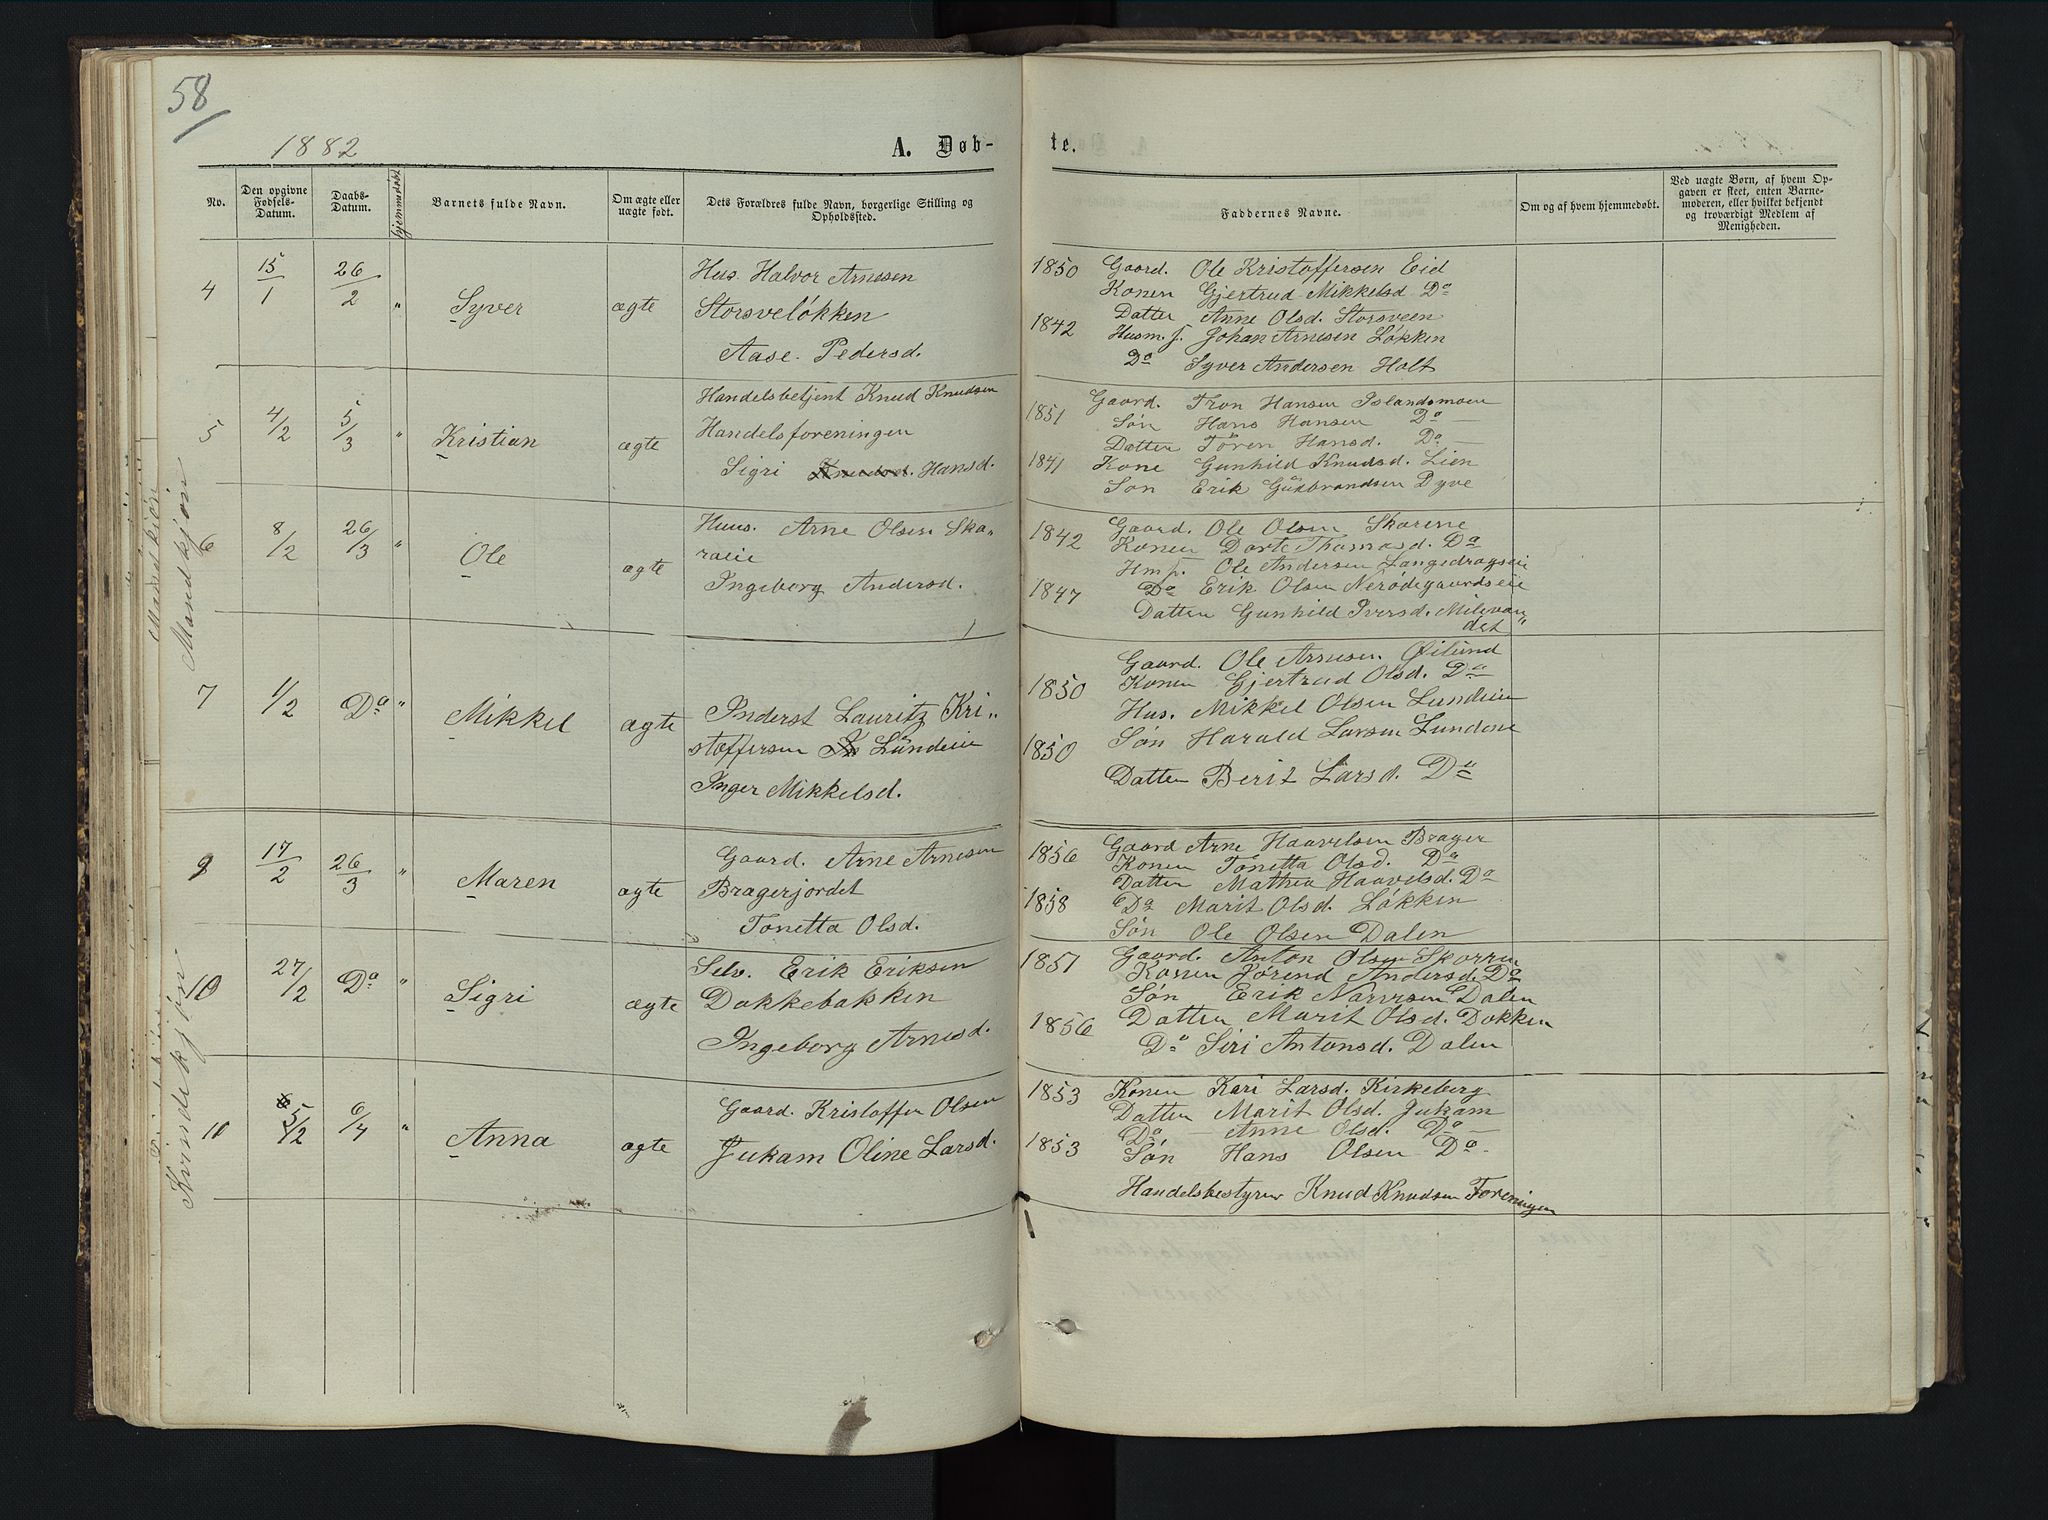 58
1882
A. Døb-
te.
No.
Den opgivne Fødsels-Datum.
Daabs-Datum.
hjemmedøbt
Barnets fulde Navn.
Om ægte eller uægte født.
Dets Forældres fulde Navn, borgerlige Stilling og Opholdssted.
Faddernes Navne.
Om og af hvem hjemmedøbt.
Ved uægte Børn, af hvem Op-
gaven er skeet, enten Barne-
moderen, eller hvilket bekjendt
og troværdigt Medlem af
Menigheden.
Mandkjøn
4 15/1 26/2 " Syver ægte
Hus. Halvor Arnesen
Storsveløkken
Aase Pedersd.
1850 Gaard. Ole Kristoffersen Eid
Konen Gjertrud Mikkelsd Do
Datter Anne Olsd. Storsveen
1842 Husm. f. Johan Arnesen Løkken
Do Syver Andersen Holt
5 4/2 5/3 " Kristian ægte
Handelsbetjent Knud Knudsen
Handelsforeningen
Sigri Knudsd. Hansd.
1851 Gaard. Tron Hansen Islandsmoen
Søn Hans Hansen Do
Datter Tøren Hansd. Do
1841 Kone Gunhild Knudsd. Lien
Søn Erik Gudbrandsen Dyve
6 8/2 26/3 " Ole ægte
Huus. Arne Olsen Ska-
raeie
Ingeborg Andersd.
1842 Gaard. Ole Olsen Skarene
Konen Dorte Thomasd. Do
Hmf. Ole Andersen Langedragseie
1847 Do Erik Olsen Nerødegaardseie
Datter Gunhild Iversd. Milevan"
det
7 1/2 Do " Mikkel ægte
Inderst Lauritz Kri-
stoffersen Lundeie
Inger Mikkelsd.
Gaard. Ole Arnesen Øilund
1850 Konen Gjertrud Olsd. Do
Hus. Mikkel Olsen Lundeie
1850 Søn Harald Larsen Lundene
Datter Berit Larsd. Do
Kvindekjøn
9 17/2 26/3 " Maren ægte
Gaard. Arne Arnesen
Bragerjordet
Tonetta Olsd.
1856 Gaard Arne Haavelsen Brager
Konen Tonetta Olsd. Do
Datter Mathea Haavelsd. Do
1858 Do Marit Olsd. Løkken
Søn Ole Olsen Dalen
10 27/2 Do " Sigri ægte
Selv. Erik Eriksen
Dokkebakken
Ingeborg Arnesd.
1851 Gaard. Anton Olsen Skorren
Konen Jørend Andersd. Do
Søn Erik Narvesen Dalen
1856 Datter Marit Olsd. Dokken
Do Siri Antonsd. Dalen
10 5/2 6/4 " Anna ægte
Gaard. Kristoffer Olsen
Jukam Oline Larsd.
1853 Konen Kari Larsd. Kirkeberg
Datter Marit Olsd. Jukam
Do Anne Olsd. Do
1853 Søn Hans Olsen Do
Handelsbestyrer Knud Knudsen Foreningen